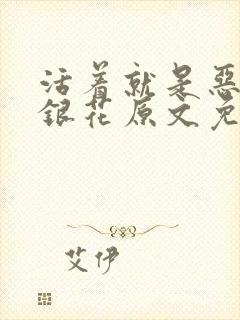 活着就是恶
银花原文免
艾伊